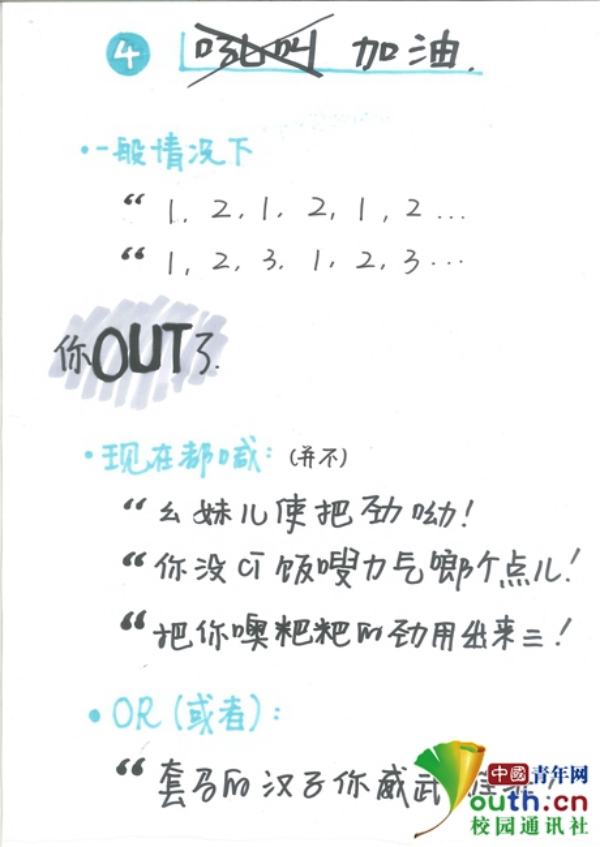 4 吼叫 加油.
·一般情况下
“ 1, 2, 1, 2, 1, 2 …
“ 1, 2, 3. 1, 2, 3 …
你OUT了.
·现在都喊: (并不)
“ 幺妹儿使把劲呦!
“ 你没吃饭嗖力气啷个点儿!
“ 把你噢粑粑的劲用出来三!
·OR (或者):
“ 套马的汉子你威武
中國青年网
outh.cn
校园通讯社